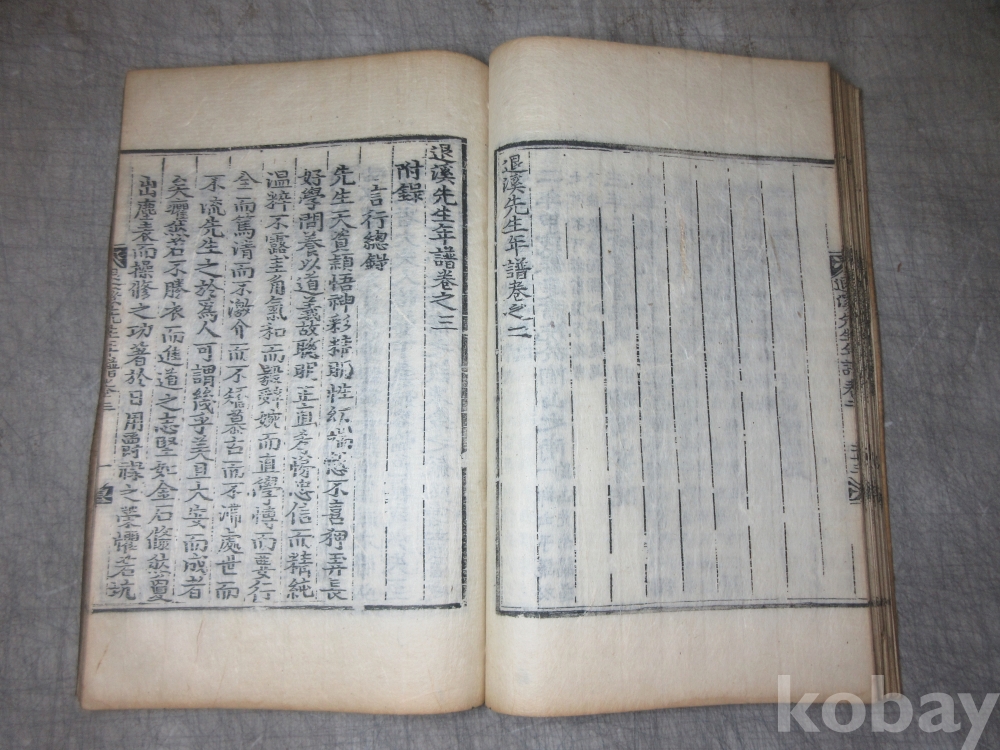 退溪先生年譜卷二
退溪先生年譜卷之二
退溪先生年譜卷之三
附錄
言行總錄
先生天資穎悟神彩精明性端慤不喜狎弄長
好學問養以道義故聰明正直孝悌忠信而精純
溫粹不露圭角氣和而毅辭婉而直學博而要行
全而篤清而不激介而不矯慕古而不滯處世而
不流先生之於爲人可謂幾乎美且大安而成者
矣癯然若不勝衣而進道之志堅如金石翛然夐
出塵表而操修之功著於日用爵祿之榮懼若坑
退溪先生年譜卷三 一
kobay